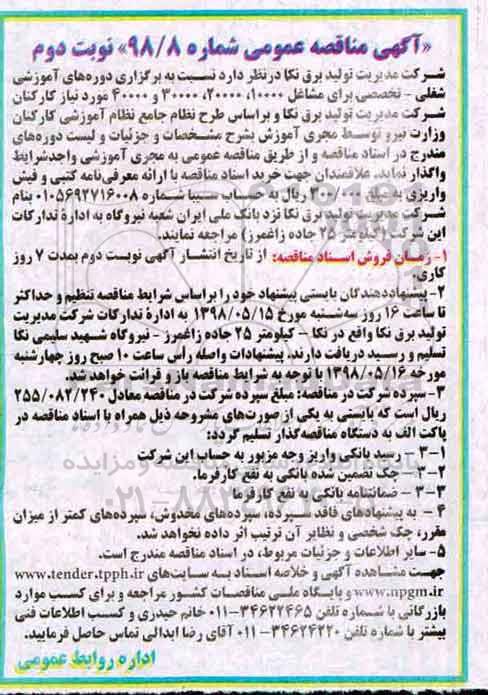 «آگهی مناقصه عمومی شماره ۹۸/۸» نوبت دوم
شرکت مدیریت تولید برق نکا درنظر دارد نسبت به برگزاری دوره‌های آموزشی
شغلی - تخصصی برای مشاغل ۱۰۰۰۰، ۲۰۰۰۰، ۳۰۰۰۰ و ۴۰۰۰۰ مورد نیاز کارکنان
شرکت مدیریت تولید برق نکا و براساس طرح نظام جامع نظام آموزشی کارکنان
وزارت نیرو توسط مجری آموزش بشرح مشخصات و جزئیات و لیست دوره‌های
مندرج در اسناد مناقصه و از طریق مناقصه عمومی به مجری آموزشی واجدشرایط
واگذار نماید. علاقمندان جهت خرید اسناد مناقصه با ارائه معرفی‌نامه کتبی و فیش
واریزی به مبلغ ریال به حساب سیبا شماره ۰۱۰۵۶۹۲۷۱۶۰۰۸ بنام
شرکت مدیریت تولید برق نکا نزد بانک ملی ایران شعبه نیروگاه به ادارهٔ تدارکات
این شرکت (کیلومتر ۲۵ جاده زاغمرز) مراجعه نمایند.
۱- زمان فروش اسناد مناقصه: از تاریخ انتشار آگهی نوبت دوم بمدت ۷ روز
کاری.
۲- پیشنهاددهندگان بایستی پیشنهاد خود را براساس شرایط مناقصه تنظیم و حداکثر
تا ساعت ۱۶ روز سه‌شنبه مورخ ۱۳۹۸/۰۵/۱۵ به ادارهٔ تدارکات شرکت مدیریت
تولید برق نکا واقع در نکا - کیلومتر ۲۵ جاده زاغمرز - نیروگاه شهید سلیمی نکا
تسلیم و رسید دریافت دارند. پیشنهادات واصله رأس ساعت ۱۰ صبح روز چهارشنبه
مورخه ۱۳۹۸/۰۵/۱۶ با توجه به شرایط مناقصه باز و قرائت خواهد شد.
۳- سپرده شرکت در مناقصه: مبلغ سپرده شرکت در مناقصه معادل ۲۵۵/۰۸۲/۲۴۰
ریال است که بایستی به یکی از صورت‌های مشروحه ذیل همراه با اسناد مناقصه در
پاکت الف به دستگاه مناقصه‌گذار تسلیم گردد:
۳-۱ - رسید بانکی واریز وجه مزبور به حساب این شرکت
۳-۲ - چک تضمین شده بانکی به نفع کارفرما.
۳-۳ - ضمانتنامه بانکی به نفع کارفرما
۴ - به پیشنهادهای فاقد سپرده، سپرده‌های مخدوش، سپرده‌های کمتر از میزان
مقرر، چک شخصی و نظایر آن ترتیب اثر داده نخواهد شد.
۵- سایر اطلاعات و جزئیات مربوط، در اسناد مناقصه مندرج است.
جهت مشاهده آگهی و خلاصه اسناد به سایت‌های www.tender.tpph.ir
و www.npgm.ir و پایگاه ملی مناقصات کشور مراجعه و برای کسب موارد
بازرگانی با شماره تلفن ۳۴۶۲۲۴۶۵-۰۱۱ خانم حیدری و کسب اطلاعات فنی
بیشتر با شماره تلفن ۳۴۶۲۴۲۲۰-۰۱۱ آقای رضا ابدالی تماس حاصل فرمایید.
اداره روابط عمومی